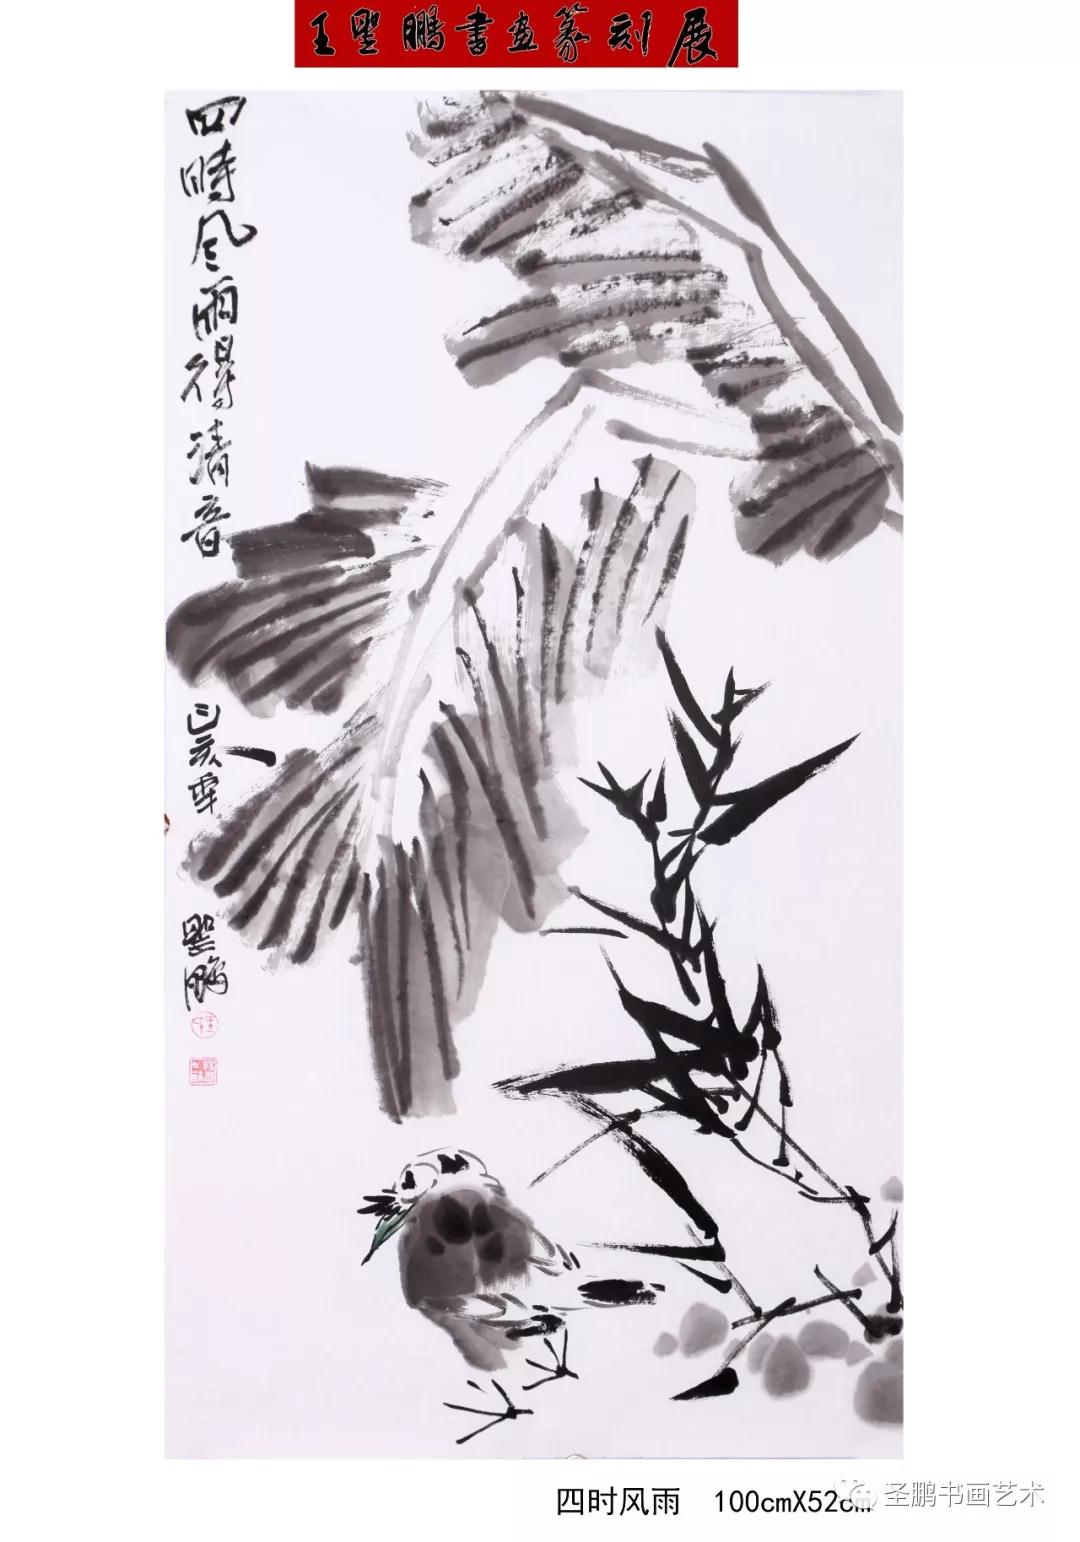 王聖鵬書画篆刻展
四時風雨得清音
己亥年
聖鵬
四时风雨 100cmX52cm
圣鹏书画艺术